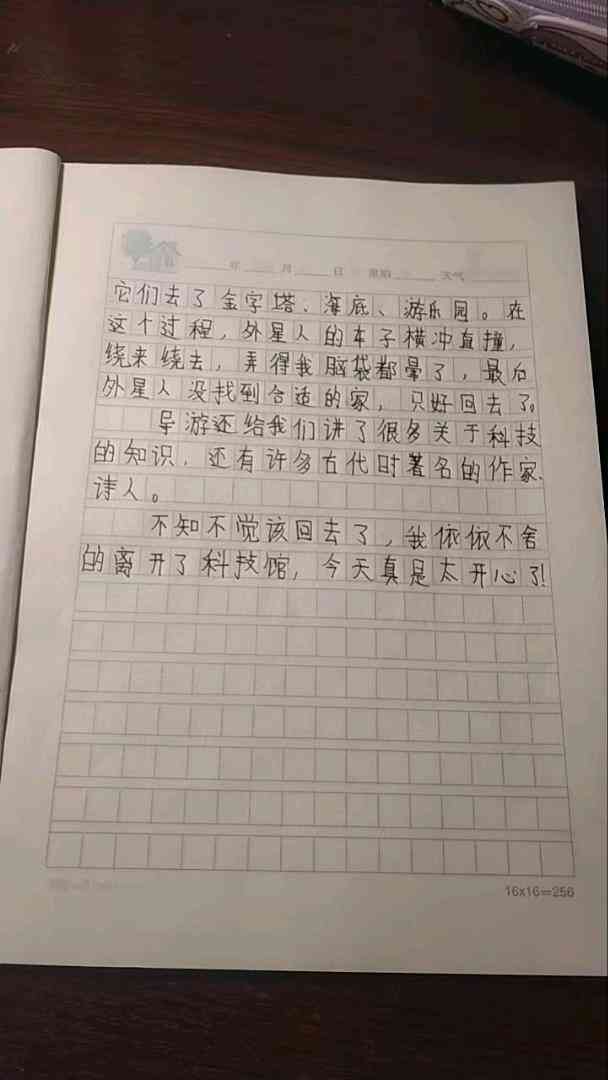 年 月 日 星期 天气
它们去了金字塔、海底、游乐园。在
这个过程,外星人的车子横冲直撞,
绕来绕去,弄得我脑袋都晕了,最后
外星人没找到合适的家,只好回去了。
导游还给我们讲了很多关于科技
的知识,还有许多古代时著名的作家、
诗人。
不知不觉该回去了,我依依不舍
的离开了科技馆,今天真是太开心了!
16x16=256